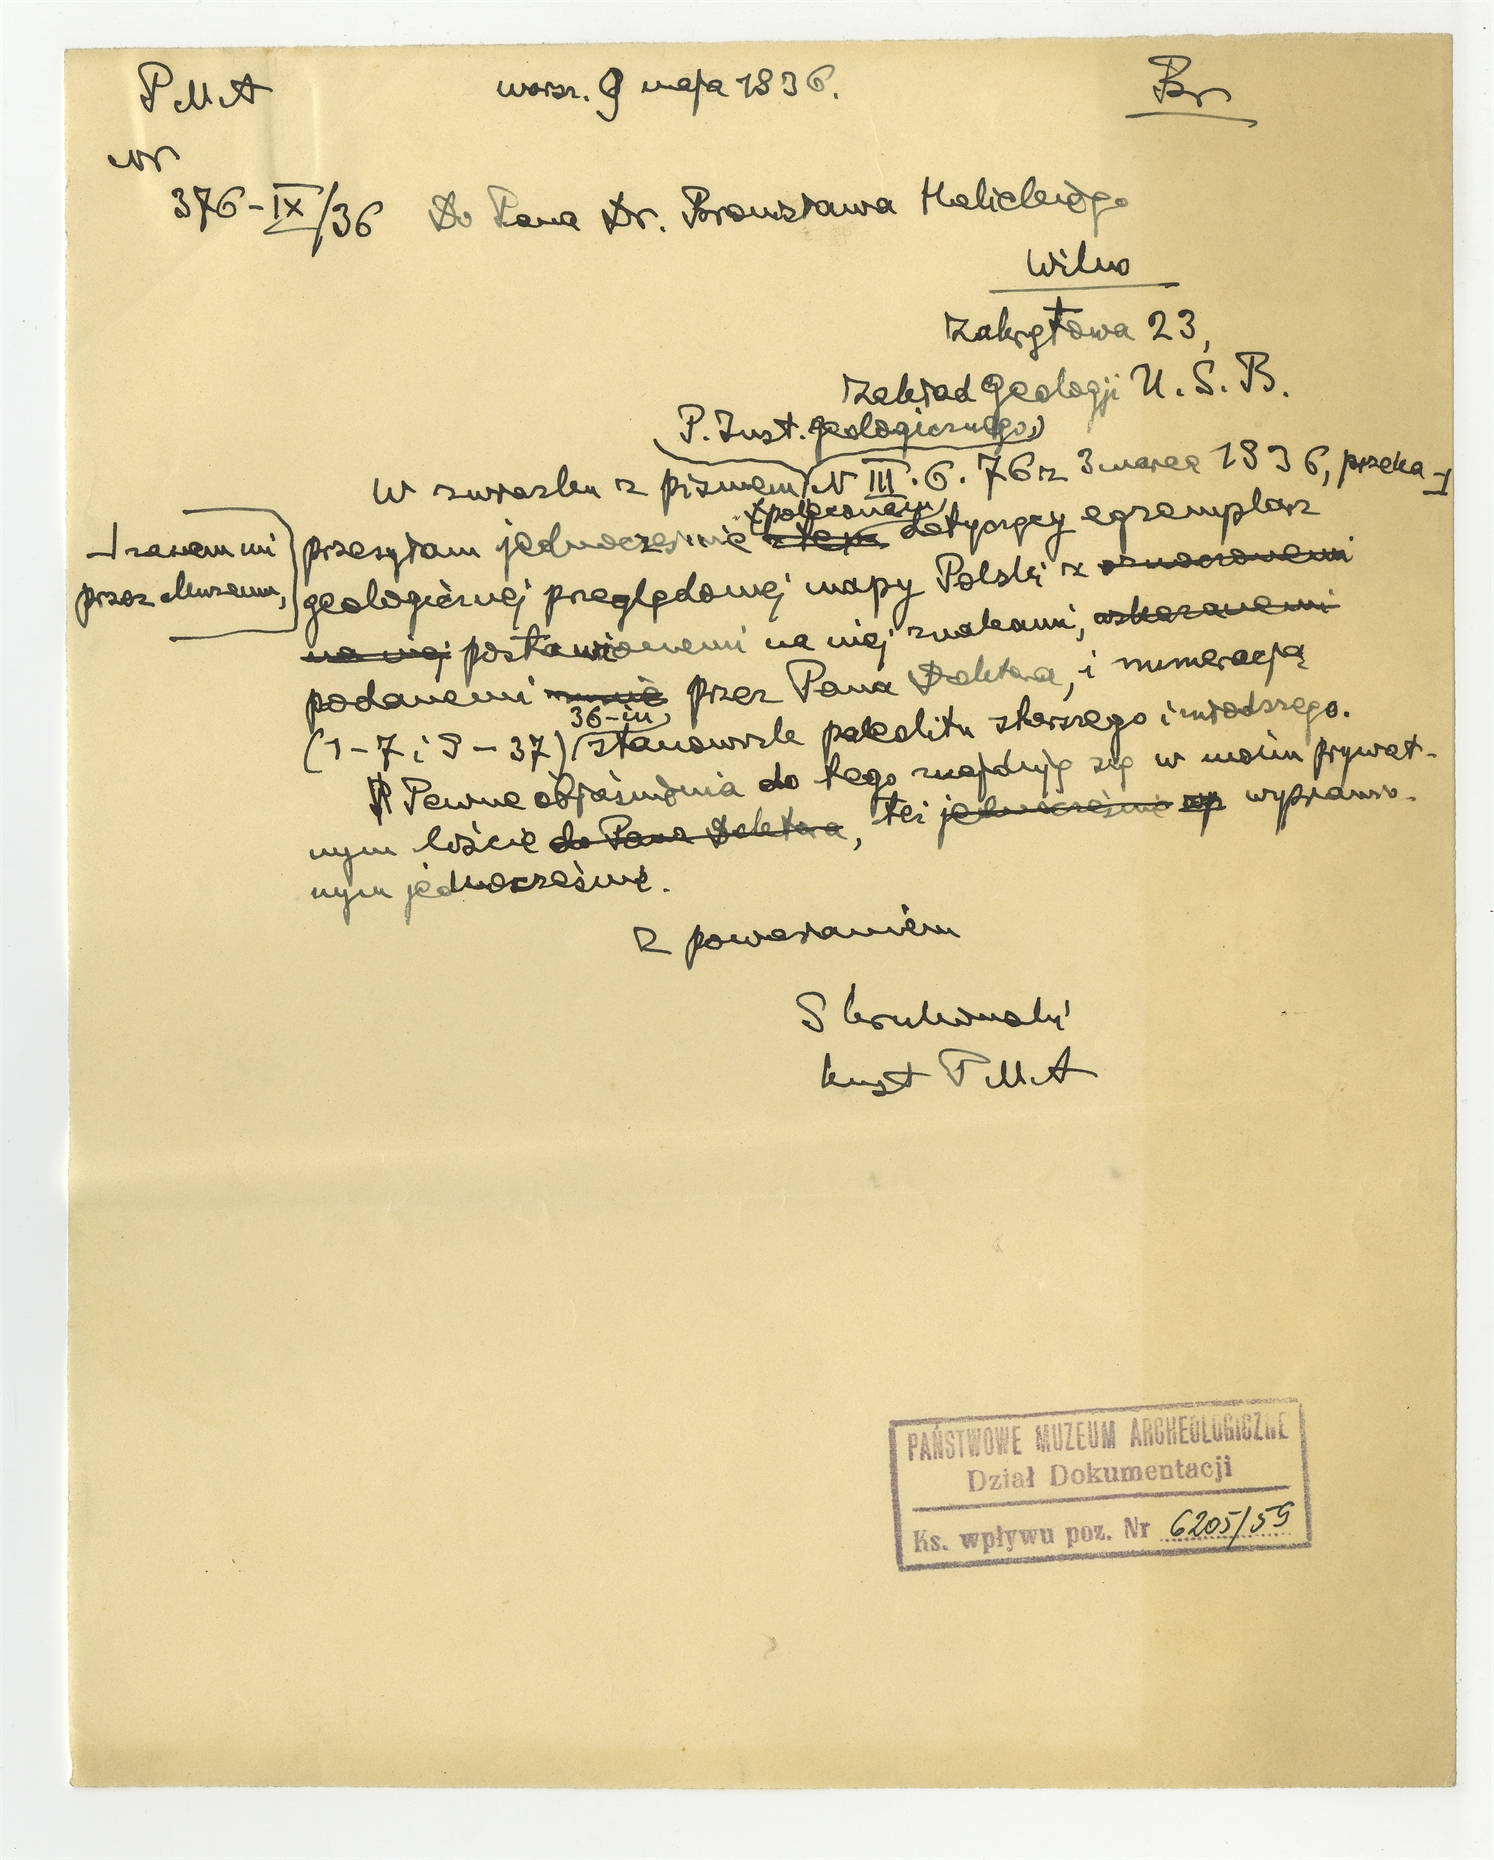 PMA warsz. 9 maja 1936. Br
Nr
376-IX/36 Do Pana Dr. Bronisława Halickiego
Wilno
Zakrętowa 23,
Zakład Geologji U.S.B.
P. Inst. geologicznego,
W związku z pismem N III.6.76 z 3 marca 1936, przeka-
zanem mi
przez Muzeum,
przesyłam jednocześnie z tem poleconem dotyczący egzemplarz
geologicznej przeglądowej mapy Polski z oznaczonemi
na niej postawionemi na niej znakami, wskazanemi
podanemi przez Pana Doktora, i numeracją
(1-7 i 9-37) 36-iu stanowisk paleolitu starszego i młodszego.
Pewne objaśnienia do tego znajdują się w moim prywat-
nym liście do Pana Doktora, też jednocześnie wyprawio-
nym jednocześnie.
Z poważaniem
S Krukowski
kust PMA
PAŃSTWOWE MUZEUM ARCHEOLOGICZNE
Dział Dokumentacji
Ks. wpływu poz. Nr 6205/59